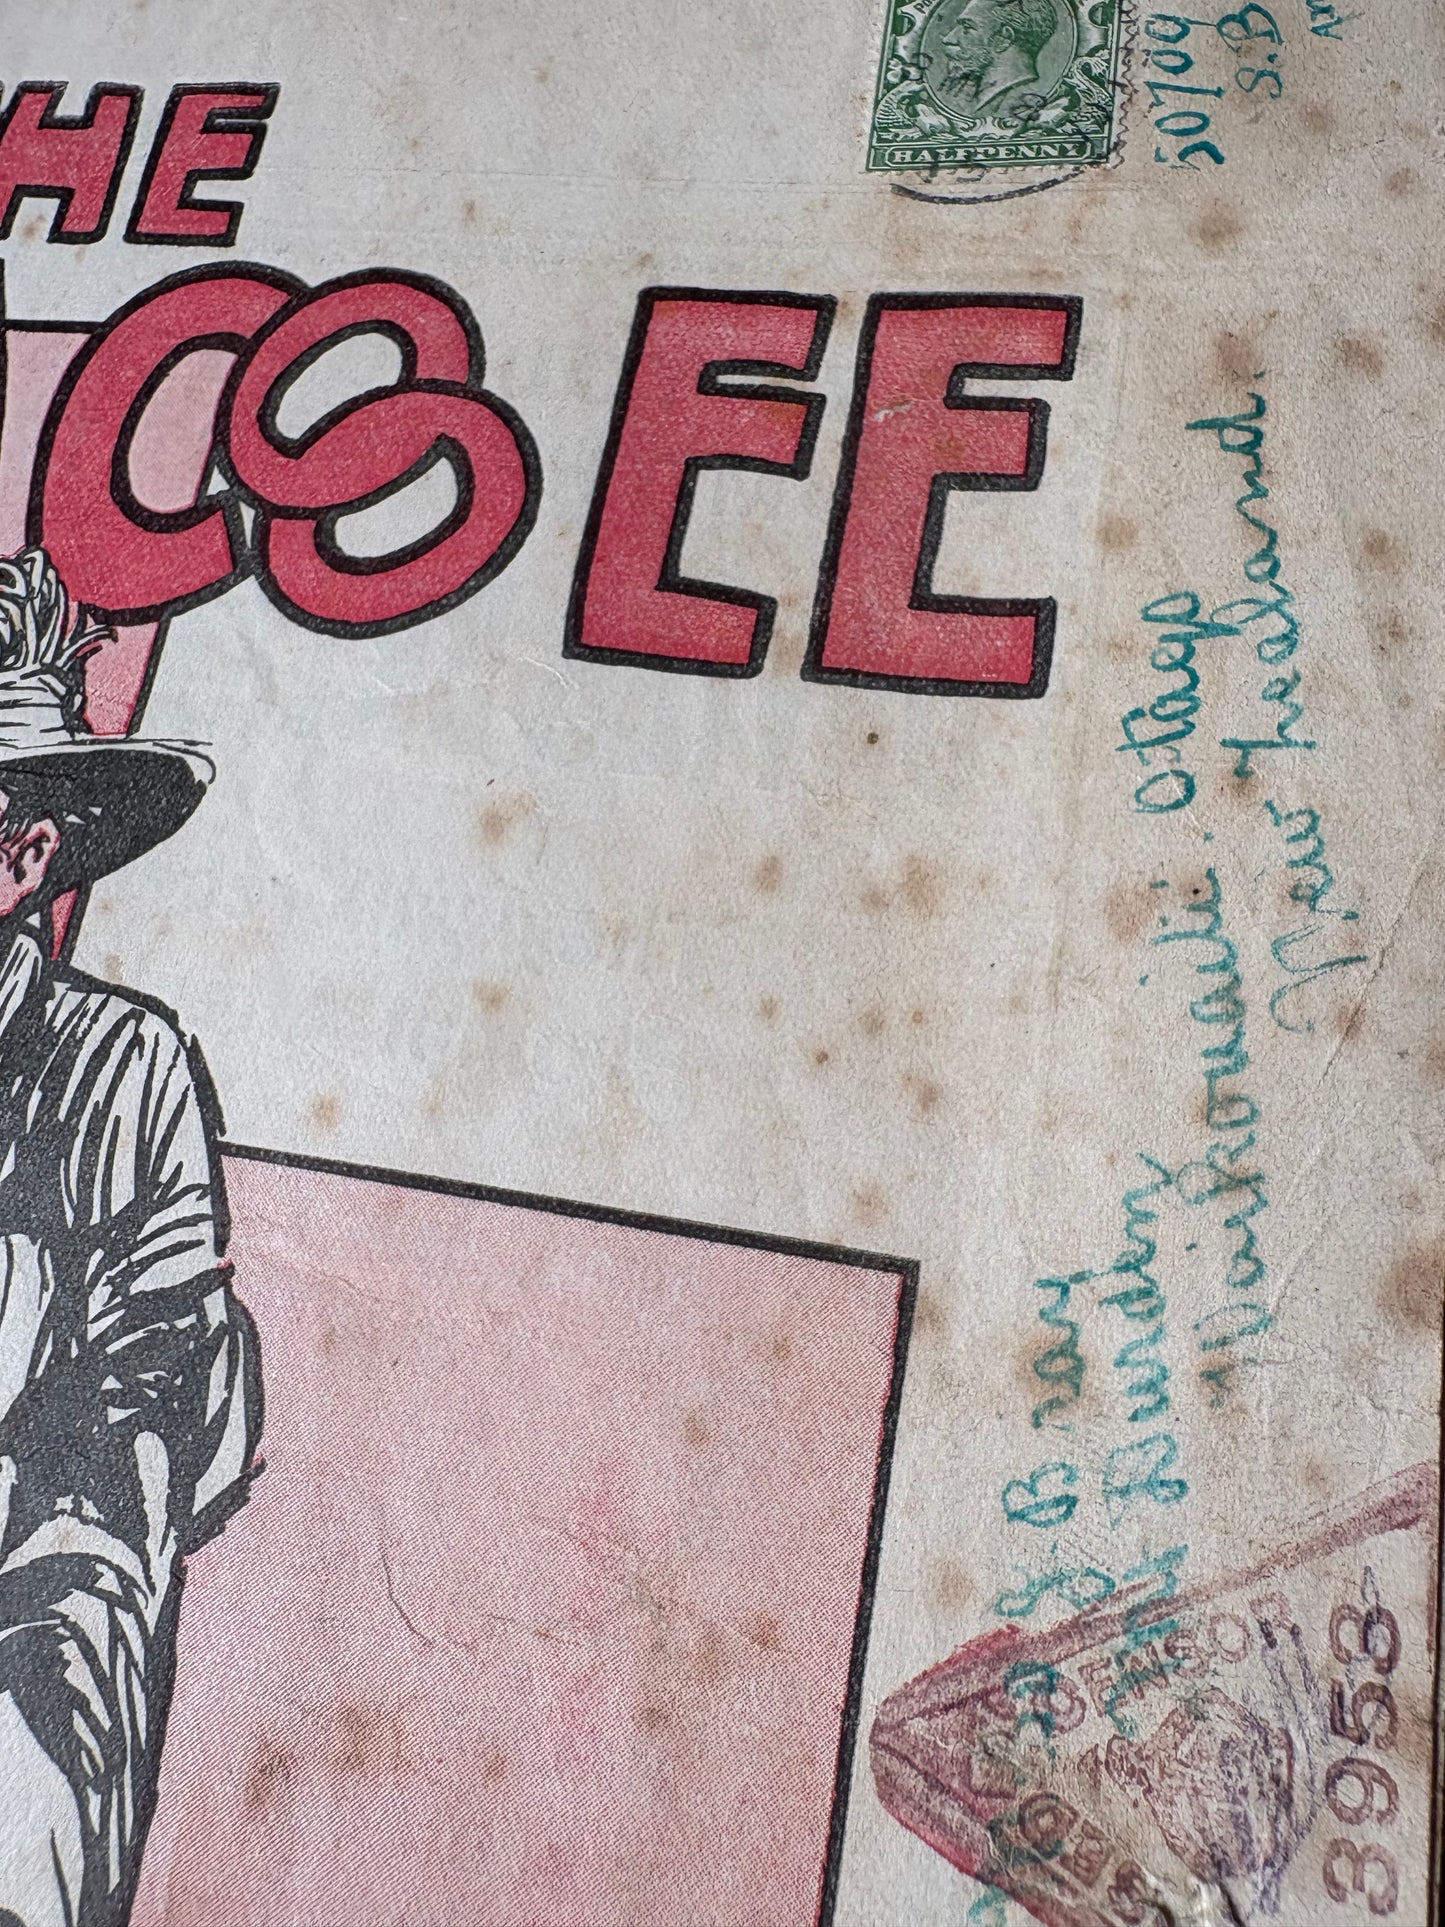 HE
OSEE
HALFPENNY
50709
S.B
J. Bray
Burden
Waikouaiti. Otago
New Zealand.
CENSOR
3953